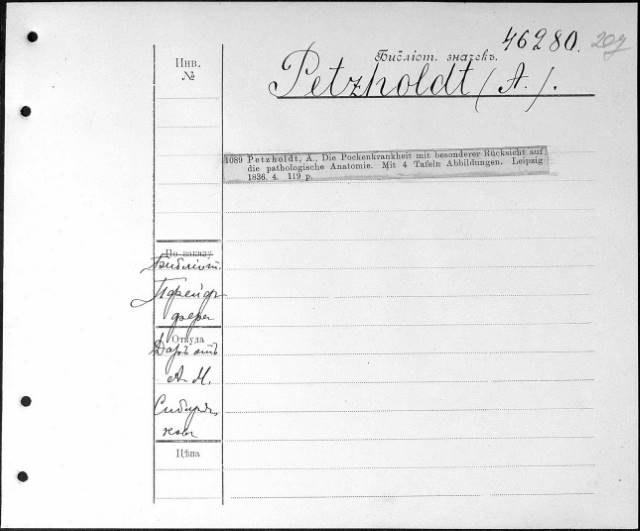 46280. 20g
Инв.
№
Библіот. значекъ.
Petzholdt (A.).
1089 Petzholdt, A., Die Pockenkrankheit mit besonderer Rücksicht auf
die pathologische Anatomie. Mit 4 Tafeln Abbildungen. Leipzig
1836. 4. 119 p.
По заказу
Библіот.
Пфейф-
фера
Откуда
Даръ отъ
А. М.
Сибиря-
кова
Цѣна